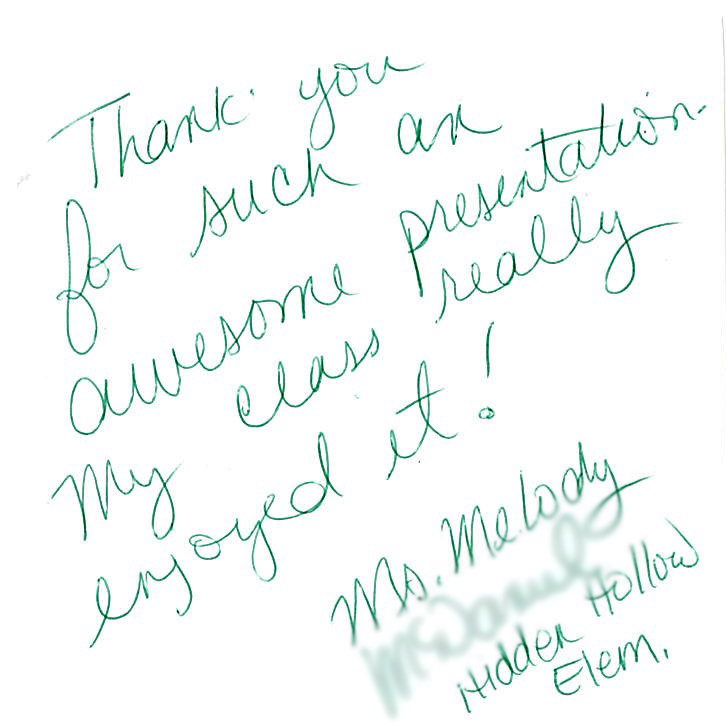 Thank you
for such an
awesome presentation.
My class really
enjoyed it!
Ms. Melody
Hidden Hollow
Elem.